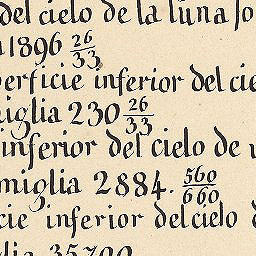 del cielo de la luna so
1896 26/33
perficie inferior del cie
miglia 230 26/33
inferior del cielo de
miglia 2884. 560/660
cie inferior del cielo
35700